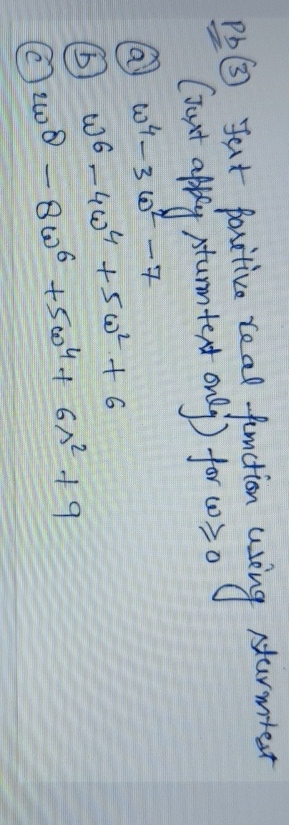 Pb ③ Test positive real function using sturmtest
(Just apply sturmtest only) for ω ≥ 0
ⓐ ω⁴ - 3ω² - 7
ⓑ ω⁶ - 4ω⁴ + 5ω² + 6
ⓒ 2ω⁸ - 8ω⁶ + 5ω⁴ + 6s² + 9